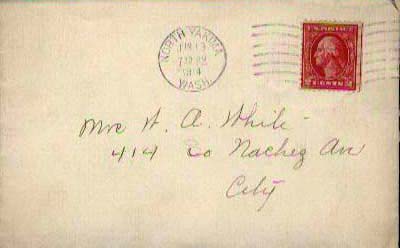 NORTH YAKIMA
JUN 13
7 30 PM
1914
WASH.
2 CENTS 2
Mrs W. A. White
414 So Nachez Ave
City